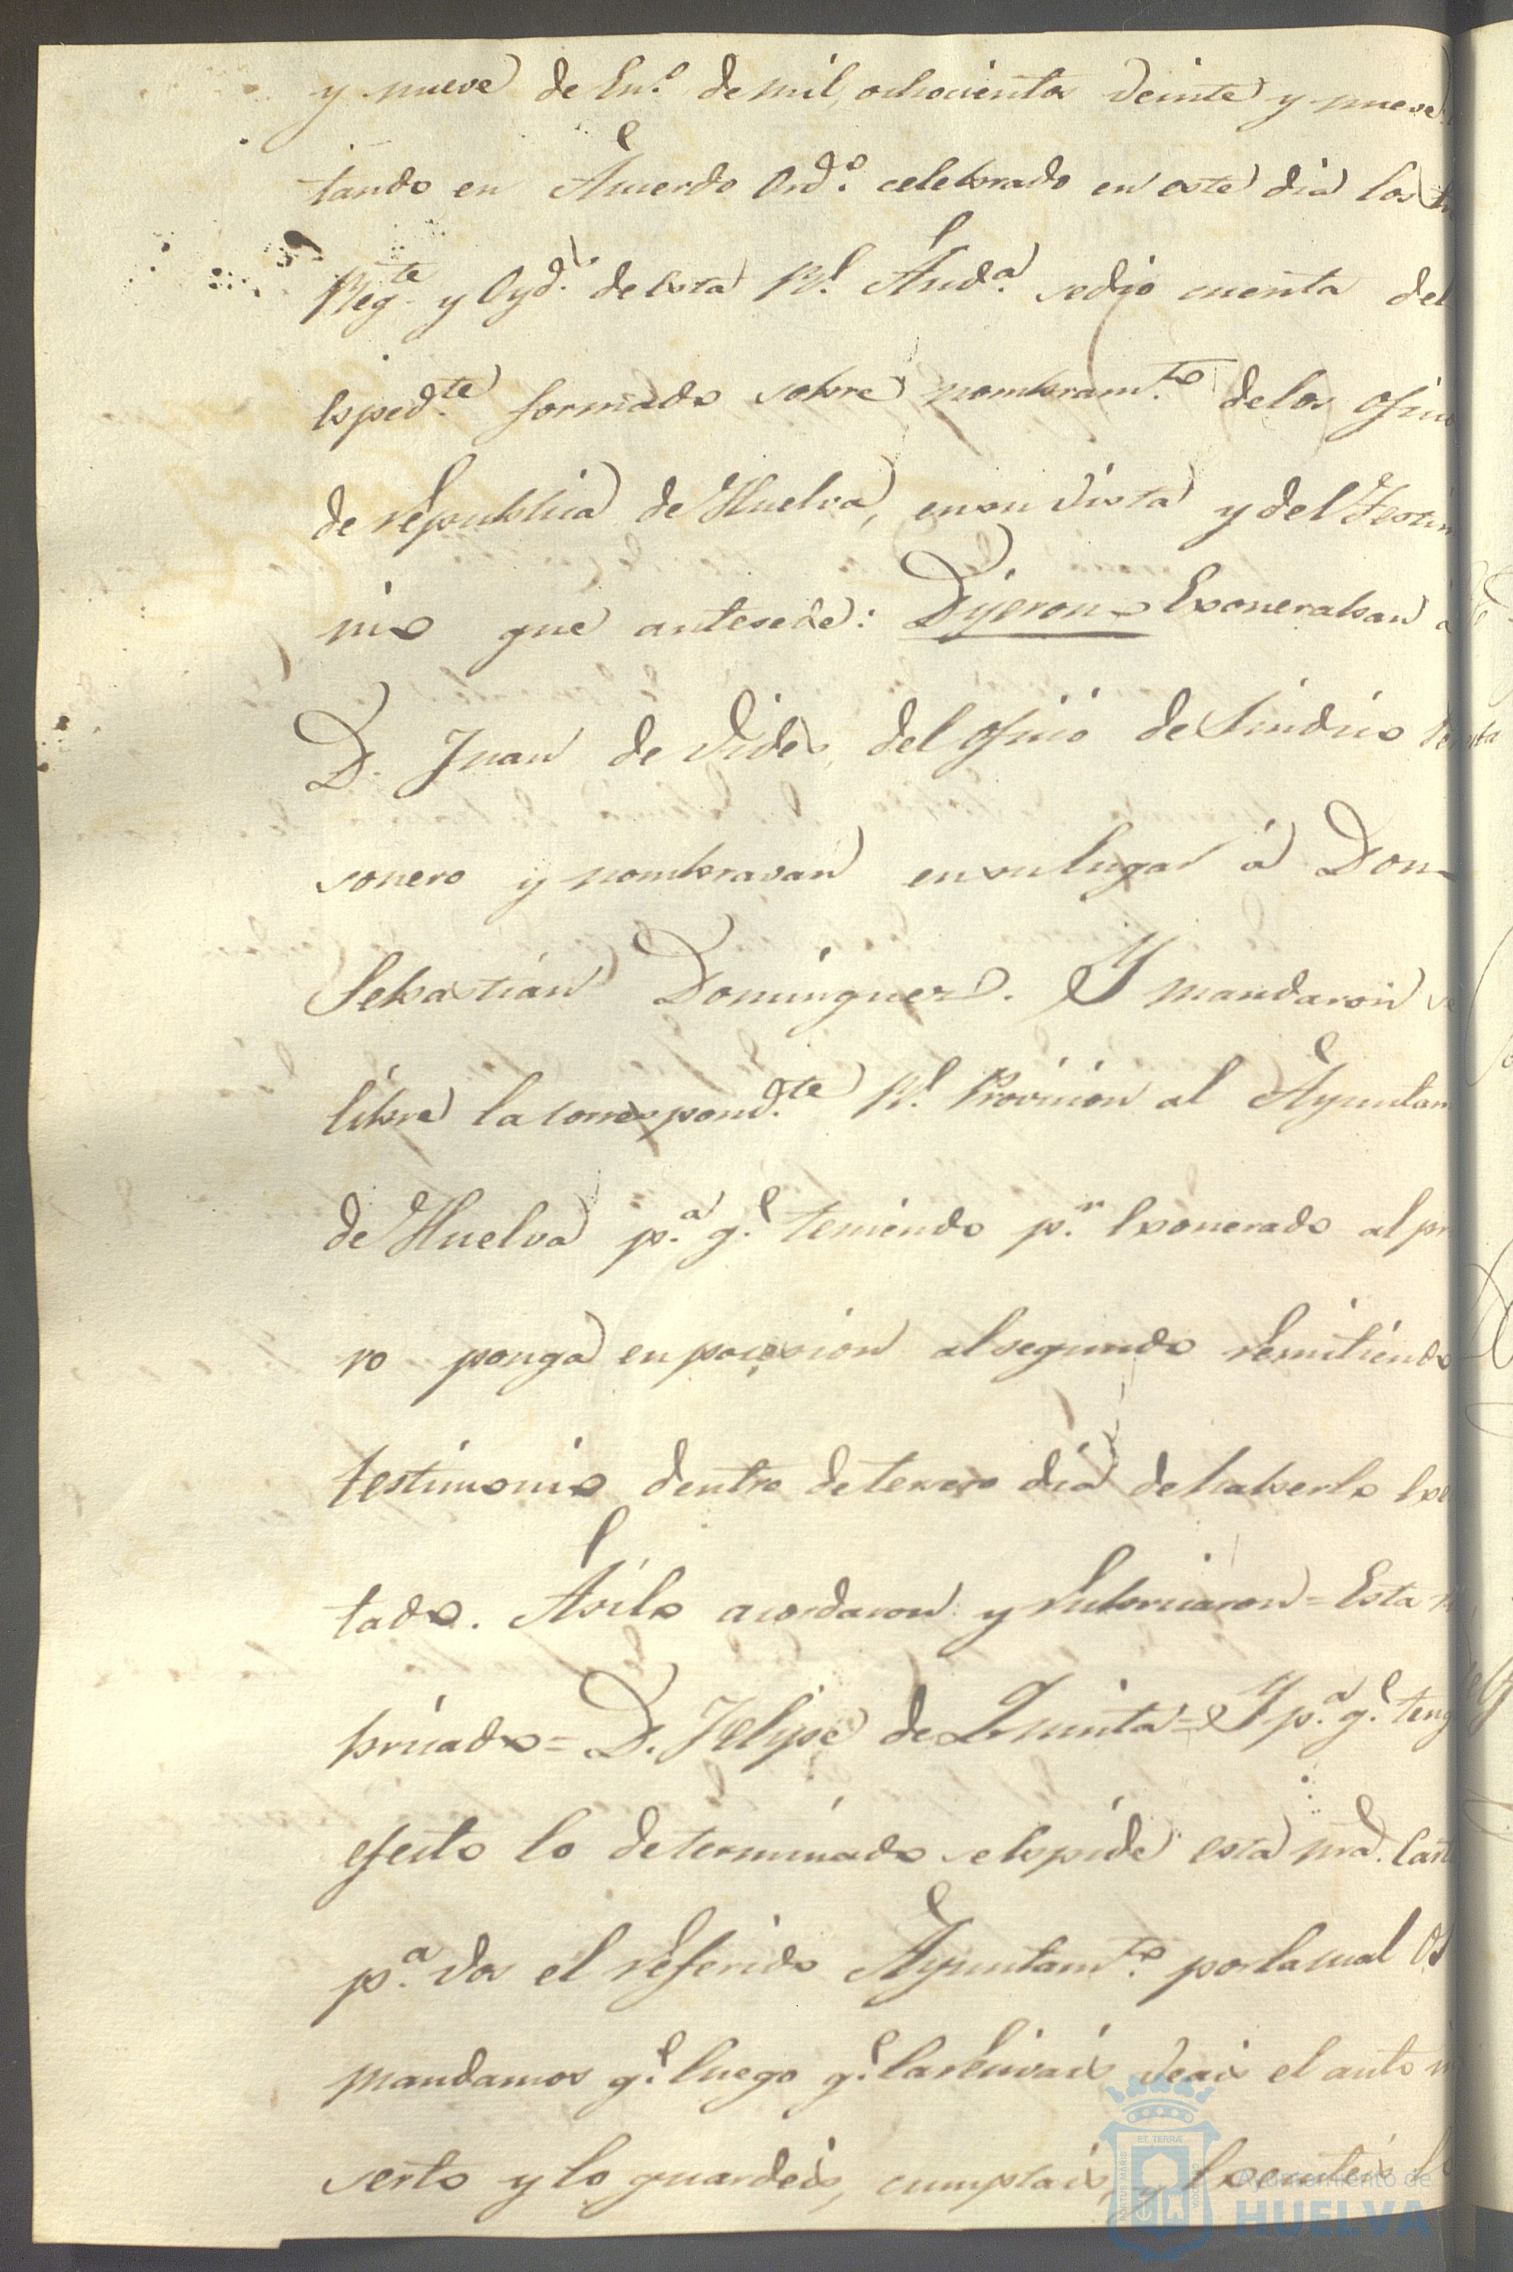 y nueve de En.º de mil, ochocientos veinte y nueve
tando en Acuerdo Ord.º celebrado en este dia los
Reg.te y Oyd.s de esta R.l Aud.a sedio cuenta del
Esped.te formado sobre nombram.to delos ofici
de republica de Huelva, ensu vista y del Testim
nio que antesede: Dijeron Exoneraban a
D. Juan de Vides, del ofisio de Sindico
sonero y nombravan ensulugar á Don
Sebastian Dominguez. Y mandaron se
libre la correspond.te R.l Provicion al Ayuntam
de Huelva p.a q.e teniendo p.r Exonerado alpr
ro ponga enpocesion alsegundo Remitiendo
testimonio dentro detercero dia dehaberlo Exe
tado. Asilo acordaron y Rubricaron = Esta
bricado = D. Felipe de Quinta = Y p.a q.e teng
efecto lo determinado seEspide esta nra. Cart
p.a Vos el referido Ayuntam.to porlacual Os
mandamos q.e luego q.e laRecivais veais el auto in
serto y lo guardeis, cumplais, y Executeis
ET TERRA
Ayuntamiento de
HUELVA